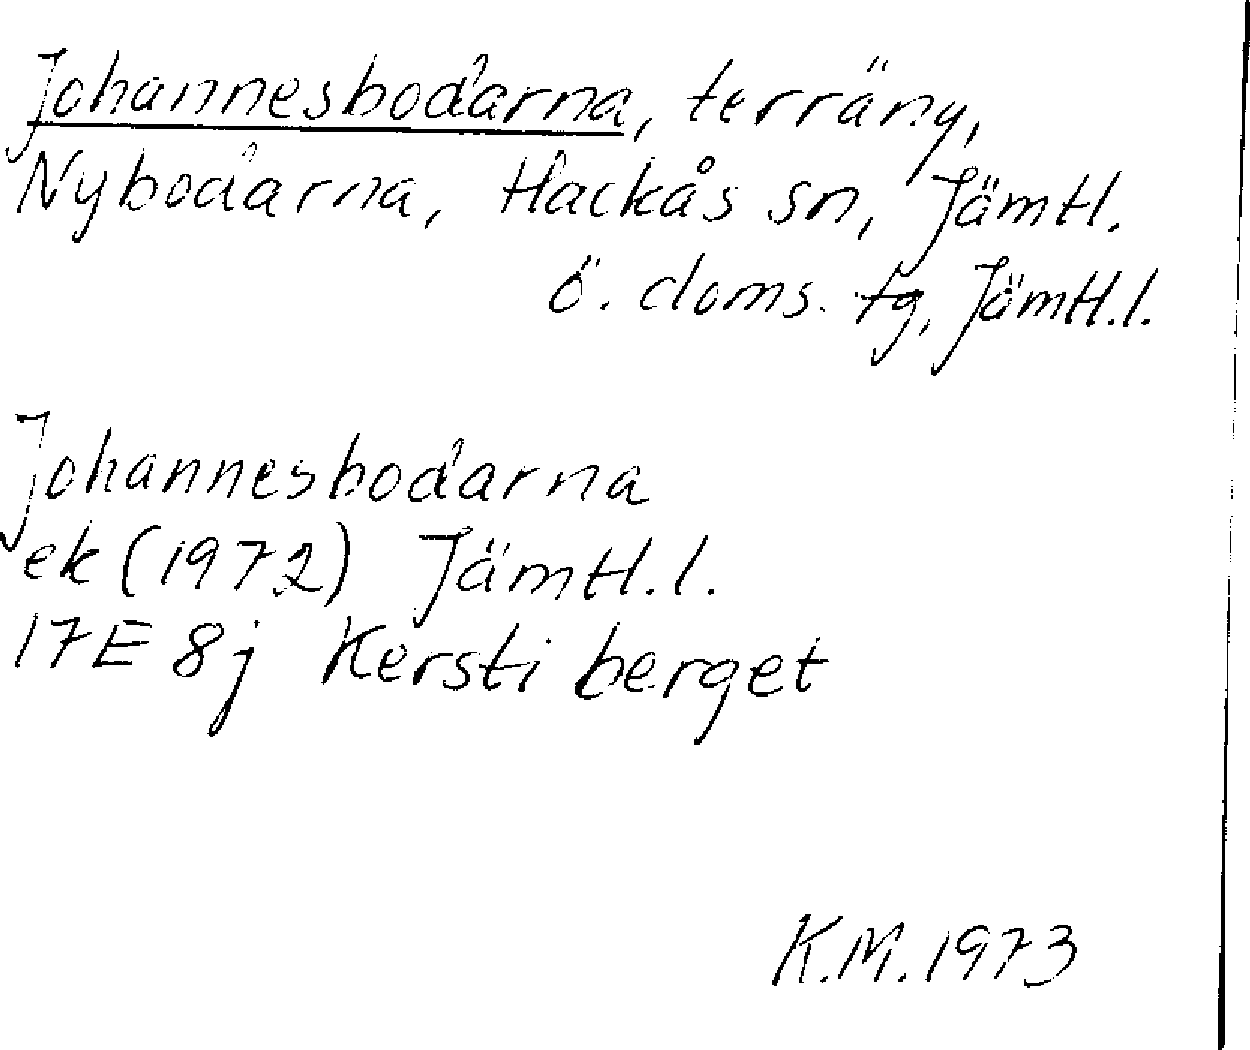 Johannesbodarna, terräng,
Nybodarna, Hackås sn, Jämtl.
ö. doms. tg, Jämtl.l.
Johannesbodarna
ek (1972) Jämtl.l.
17E 8j Kerstiberget
K.M. 1973